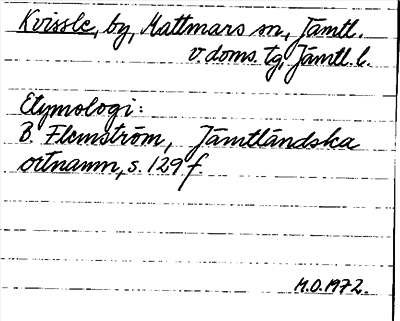 Kvissle, by, Mattmars sn, Jämtl.
v. doms. tg, Jämtl. l.
Etymologi:
B. Flemström, Jämtländska
ortnamn, s. 129 f.
M.O. 1972.